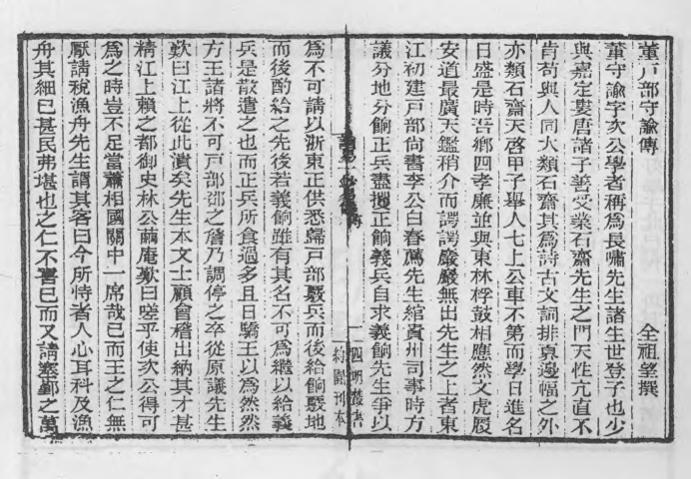 董戶部守諭傳 全祖望撰
董守諭字次公學者稱爲長嘯先生諸生世登子也少
與嘉定婁唐諸子善受業石齋先生之門天性亢直不
肯苟與人同大類石齋其爲詩古文詞排奡邊幅之外
亦類石齋天啓甲子舉人七上公車不第而學日進名
日盛是時吾鄉四孝廉並與東林桴鼓相應然文虎履
安道最廣天鑑稍介而諤諤嚴嚴無出先生之上者東
江初建戶部尚書李公白春薦先生綰貴州司事時方
議分地分餉正兵盡攫正餉義兵自求義餉先生爭以
四明叢書
約園刊本
爲不可請以浙東正供悉歸戶部覈兵而後給餉覈地
而後酌給之先後若義餉雖有其名不可爲繼以給義
兵是散遣之也而正兵所食過多且日驕王以爲然然
方王諸將不可戶部邵之詹乃調停之卒從原議先生
歎曰江上從此潰矣先生本文士顧會稽出納其才甚
精江上賴之都御史林公繭庵歎曰嗟乎使次公得可
爲之時豈不足當蕭相國關中一席哉已而王之仁無
厭請稅漁舟先生謂其客曰今所恃者人心耳科及漁
舟其細已甚民弗堪也之仁不書已而又請塞鄞之萬